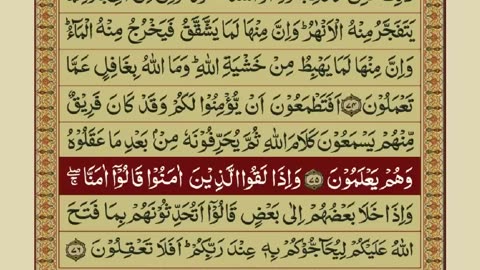 يَتَفَجَّرُ مِنْهُ الْاَنْهٰرُ ؕ وَاِنَّ مِنْهَا لَمَا يَشَّقَّقُ فَيَخْرُجُ مِنْهُ الْمَآءُ ؕ
وَاِنَّ مِنْهَا لَمَا يَهْبِطُ مِنْ خَشْيَةِ اللّٰهِ ؕ وَمَا اللّٰهُ بِغَافِلٍ عَمَّا
تَعْمَلُوْنَ ﴿۷۴﴾ اَفَتَطْمَعُوْنَ اَنْ يُّؤْمِنُوْا لَكُمْ وَقَدْ كَانَ فَرِيْقٌ
مِّنْهُمْ يَسْمَعُوْنَ كَلَامَ اللّٰهِ ثُمَّ يُحَرِّفُوْنَهٗ مِنْۢ بَعْدِ مَا عَقَلُوْهُ
وَهُمْ يَعْلَمُوْنَ ﴿۷۵﴾ وَاِذَا لَقُوا الَّذِيْنَ اٰمَنُوْا قَالُوْۤا اٰمَنَّا ۚۖ
وَاِذَا خَلَا بَعْضُهُمْ اِلٰى بَعْضٍ قَالُوْۤا اَتُحَدِّثُوْنَهُمْ بِمَا فَتَحَ
اللّٰهُ عَلَيْكُمْ لِيُحَآجُّوْكُمْ بِهٖ عِنْدَ رَبِّكُمْ ؕ اَفَلَا تَعْقِلُوْنَ ﴿۷۶﴾